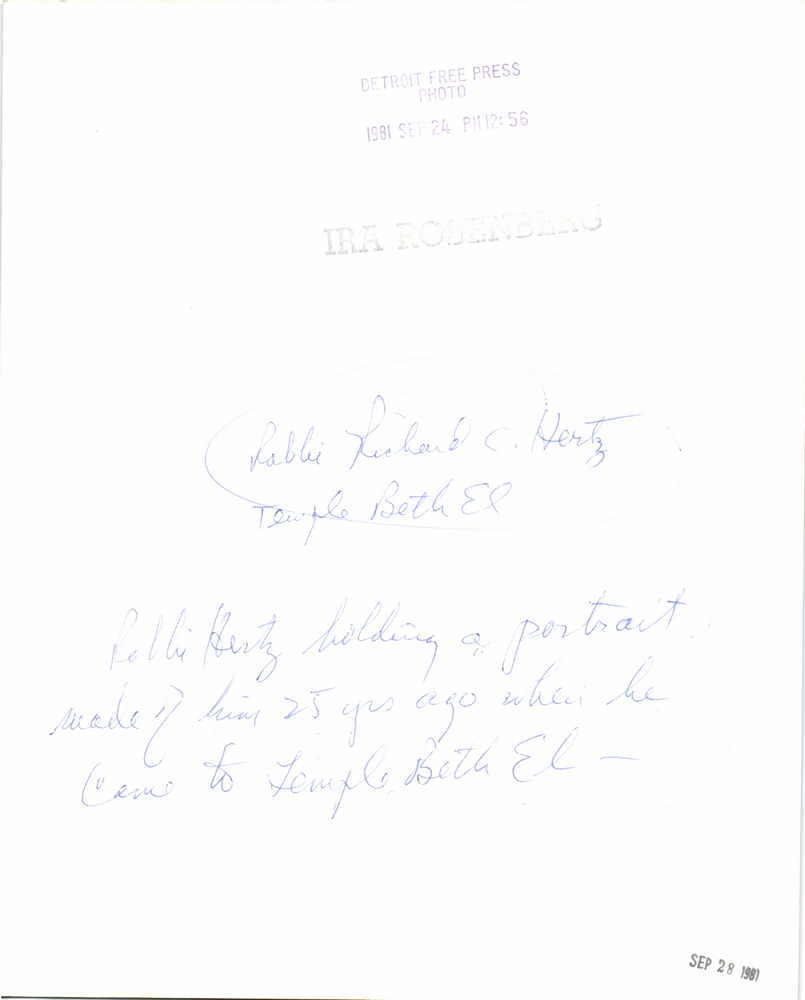 DETROIT FREE PRESS
PHOTO
1981 SEP 24 PM 12:56
IRA ROSENBERG
Rabbi Richard C. Hertz
Temple Beth El
Rabbi Hertz holding a portrait
made of him 25 yrs ago when he
came to Temple Beth El —
SEP 28 1981